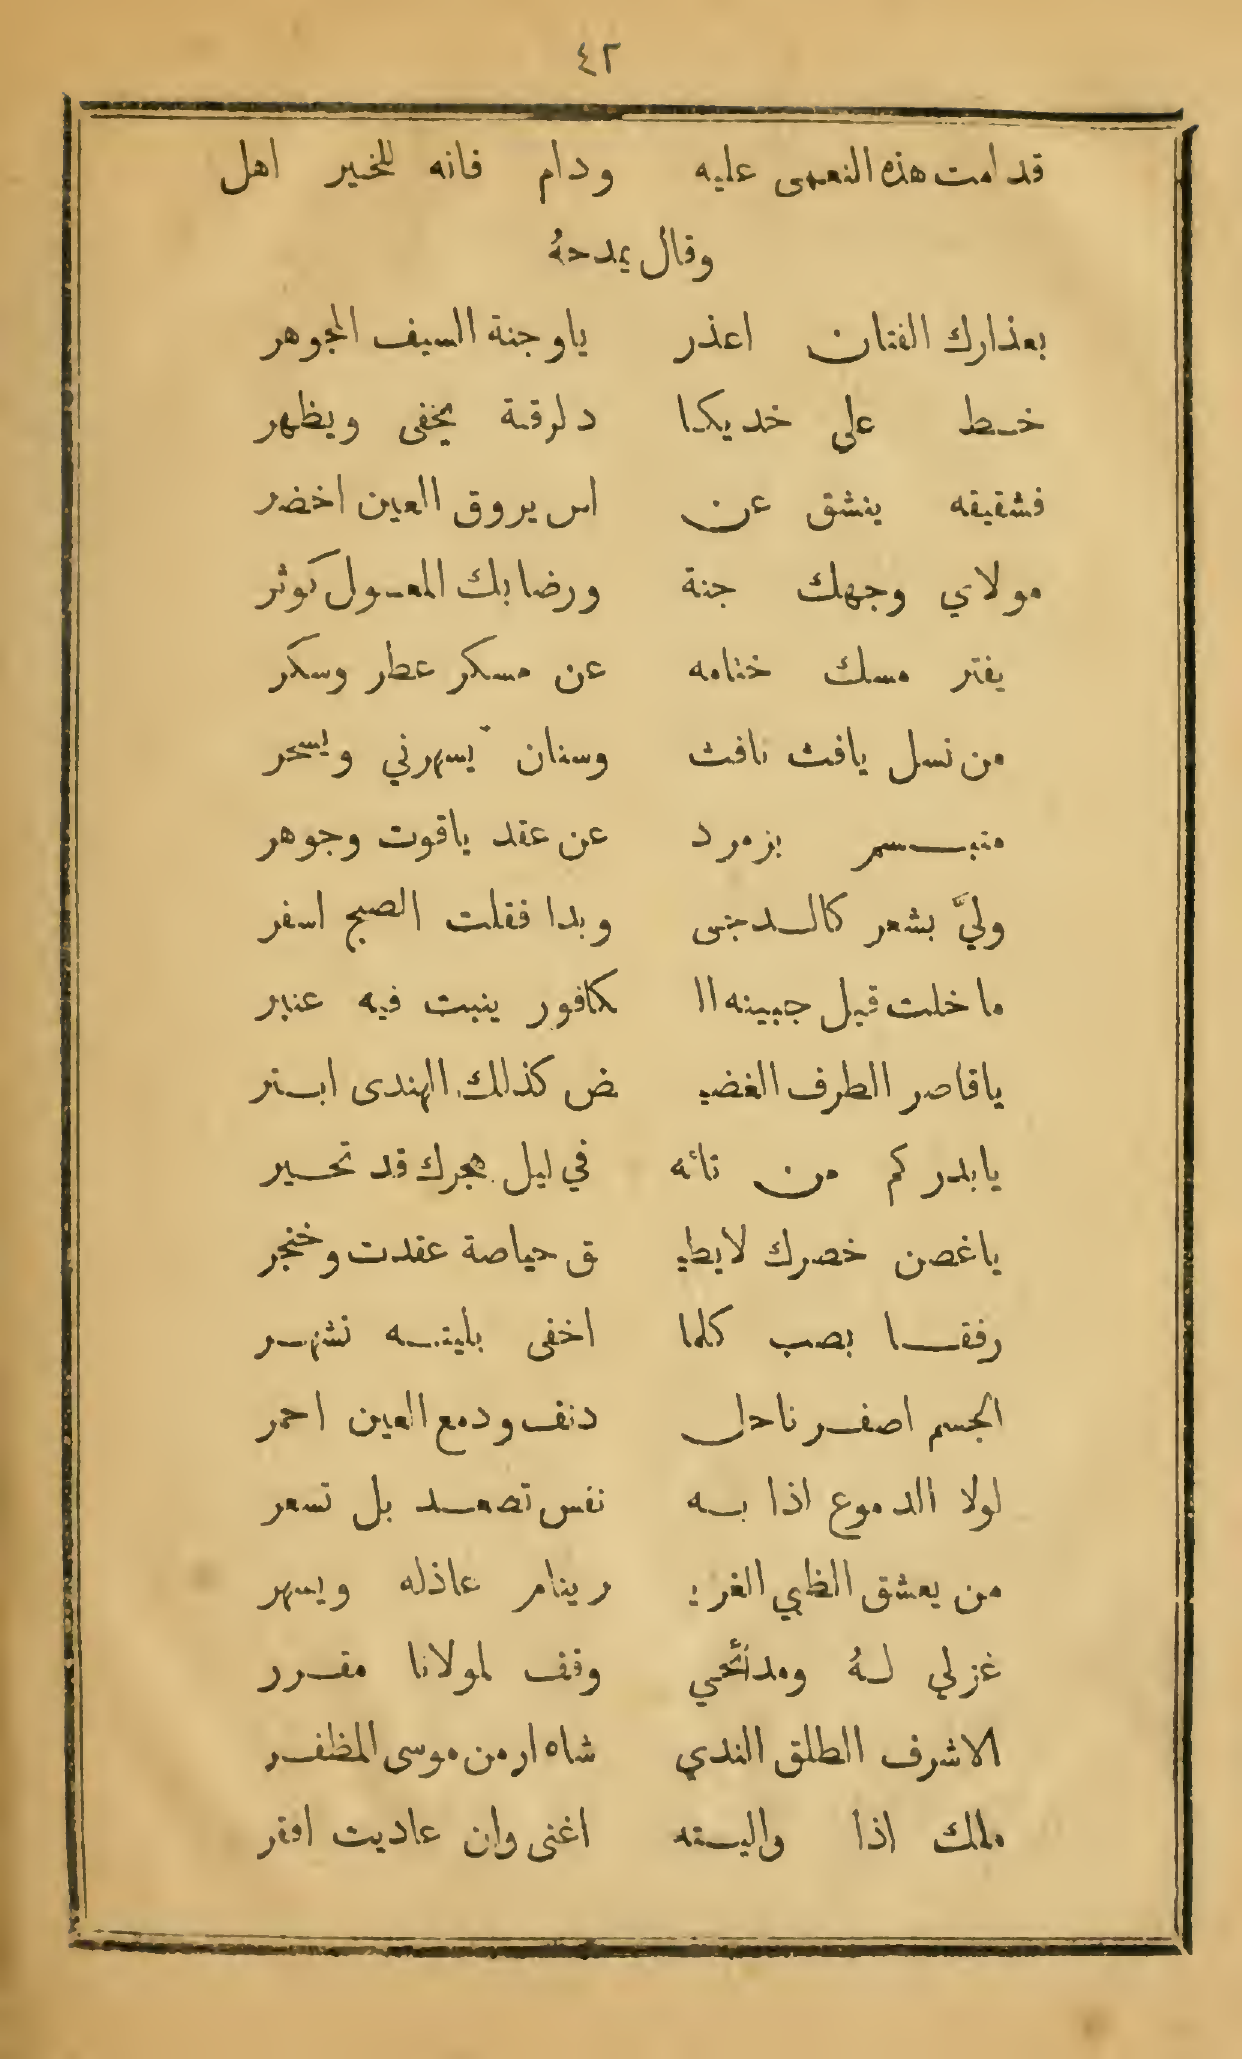 ٤٢
قدامت هذه النعمى عليه ودام فانه للخير اهل
وقال يمدحهُ
بعذارك الفتان اعذر ياوجنة السيف المجوهر
خط على خديكا دلرقة يخفى ويظهر
فشقيقه ينشق عن اس يروق العين اخضر
مولاي وجهك جنة ورضابك المعسول كوثر
يفتر مسك ختامه عن مسكر عطر وسكر
من نسل يافث نافث وسنان يسهرني ويسحر
متبسم بزمرد عن عقد ياقوت وجوهر
وليَّ بشعر كالدجى وبدا فقلت الصبح اسفر
ما خلت قبل جبينه ال كافور ينبت فيه عنبر
ياقاصر الطرف الغضيـ ـض كذلك الهندى ابتر
يابدر كم من تائه في ليل هجرك قد تحير
ياغصن خصرك لايطيـ ـق حياصة عقدت وخنجر
رفقا بصب كلما اخفى بليته تشهر
الجسم اصفر ناحل دنف ودمع العين احمر
لولا الدموع اذا به نفس تصعد بل تسعر
من يعشق الظبي الغريـ ـر ينام عاذله ويسهر
غزلي لهُ ومدائحي وقف لمولانا مقرر
الاشرف الطلق الندي شاه ارمن موسى المظفر
ملك اذا واليته اغنى وان عاديت افقر